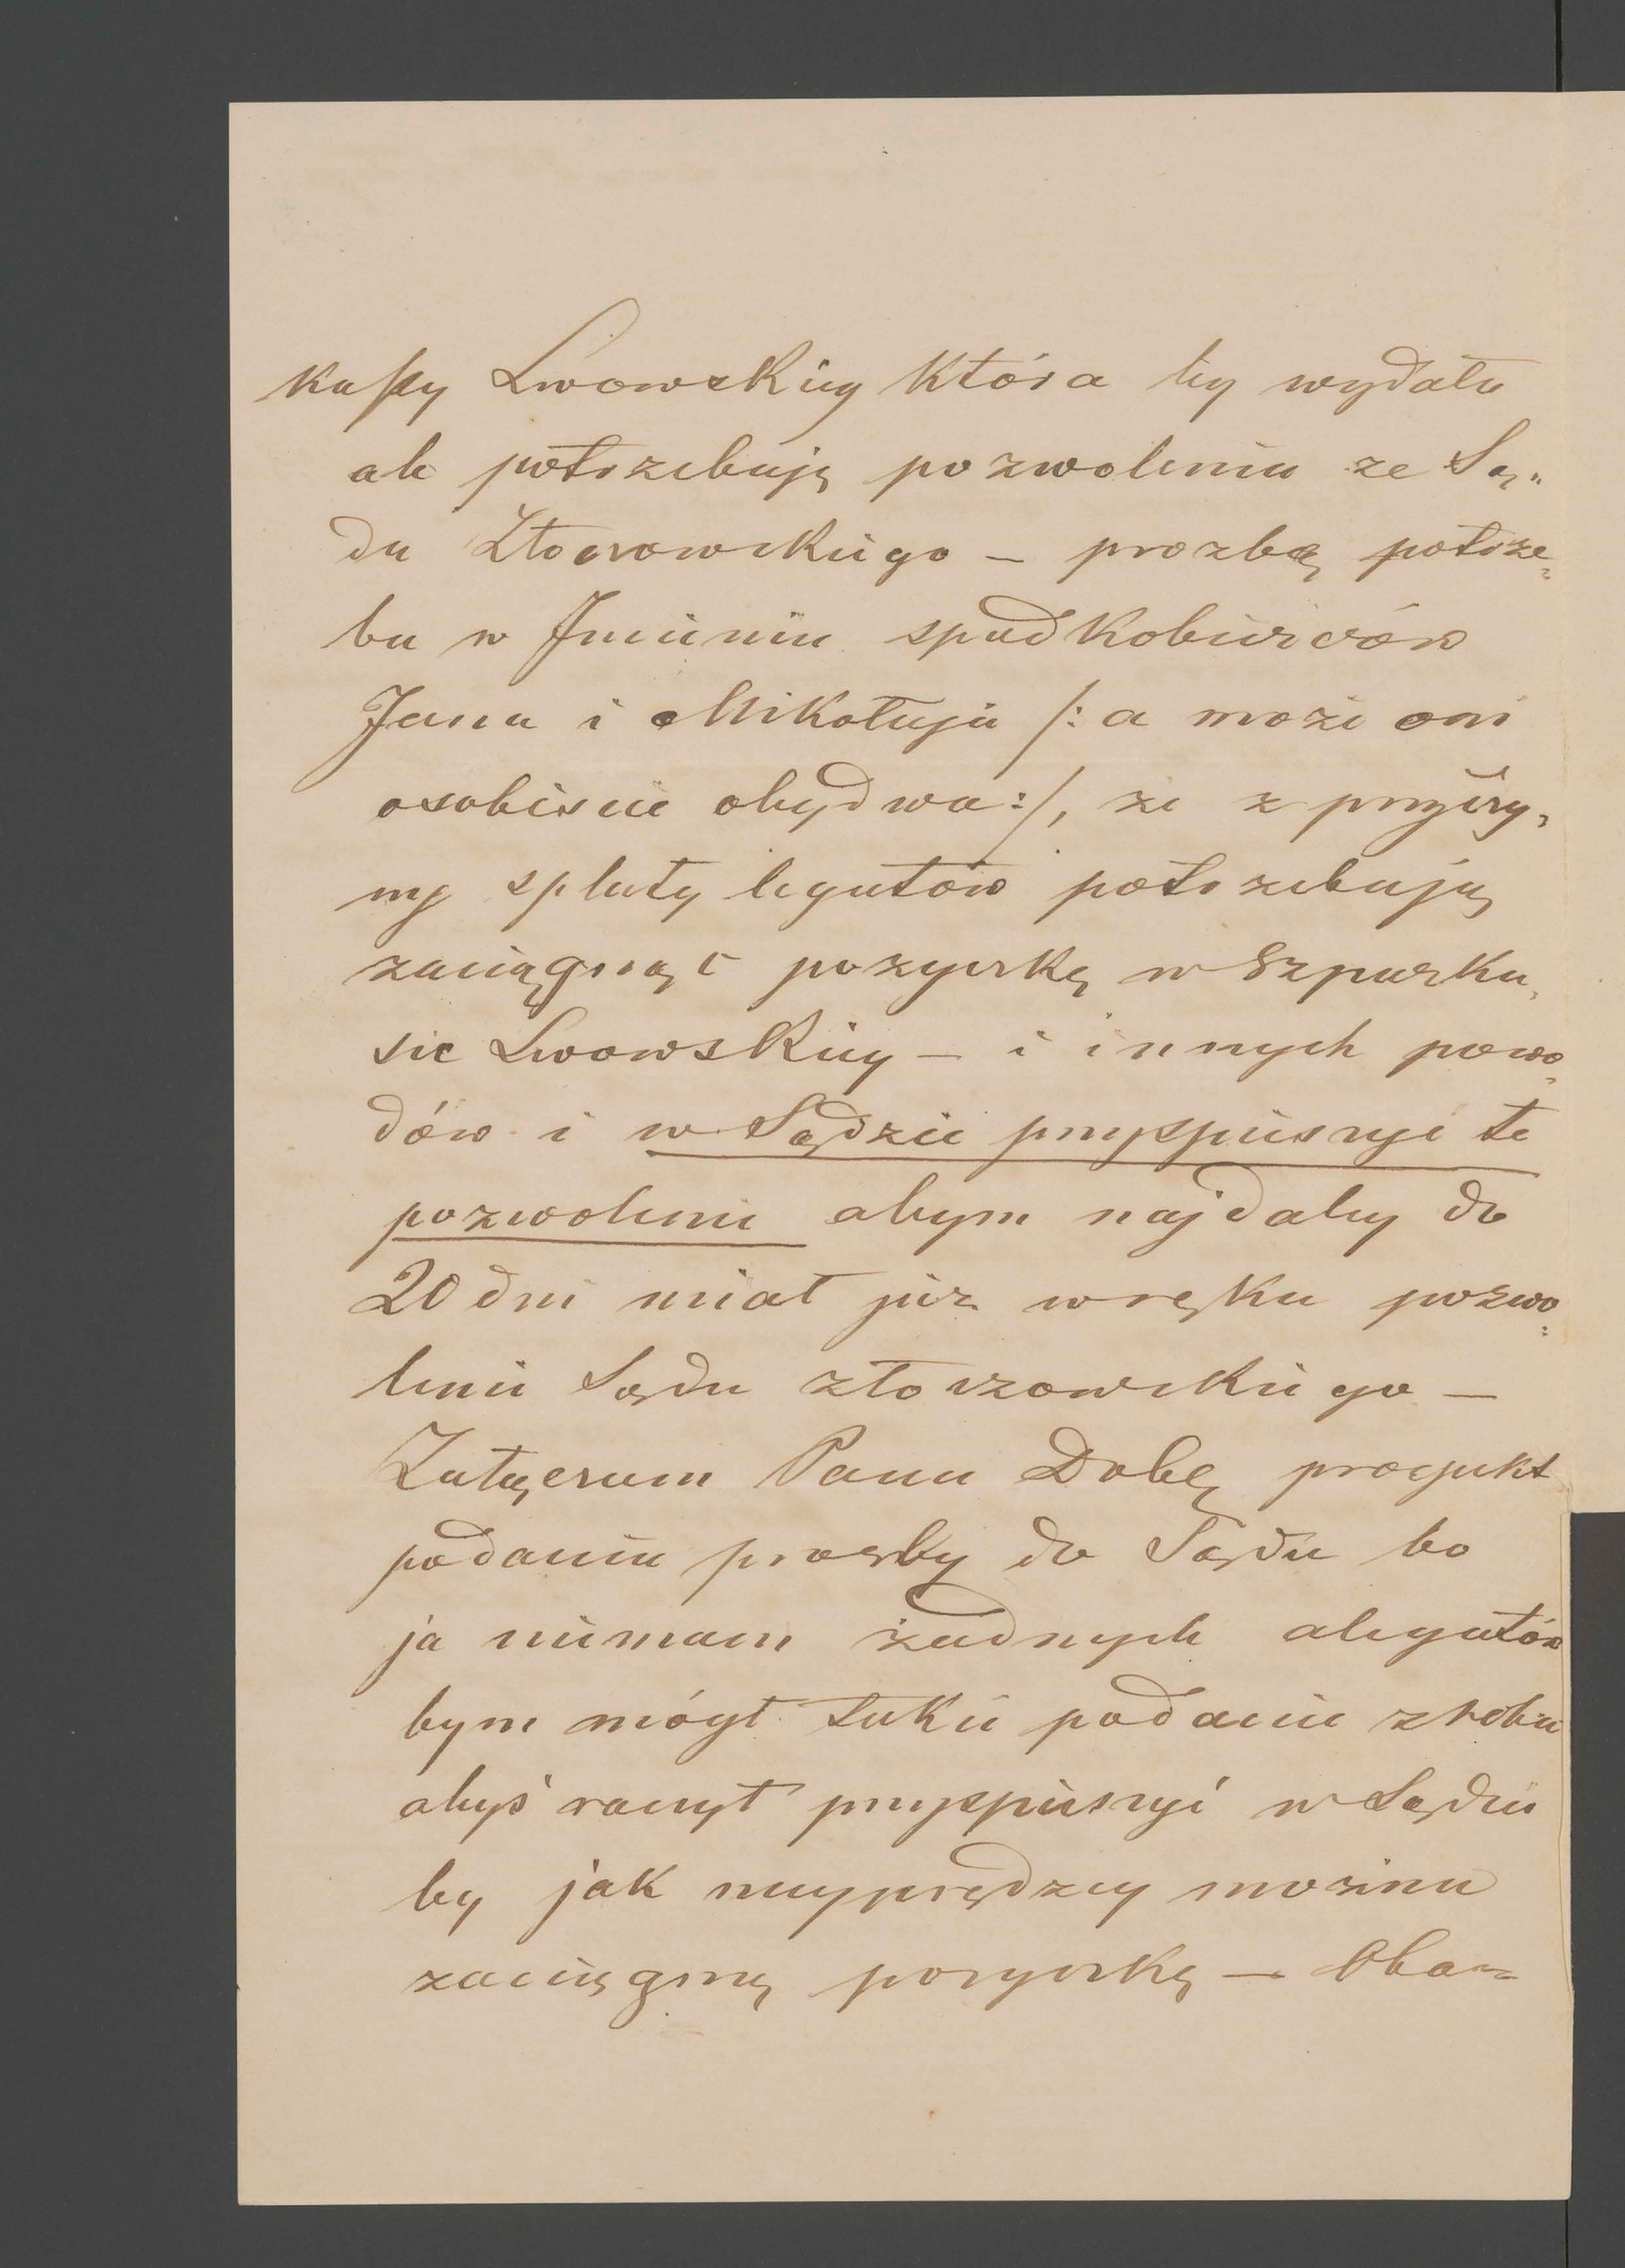 kassy Lwowskiey która by wydała
ale potrzebuję pozwolenia ze Są„
du Złoczowskiego – prozbą potrze„
ba w Imieniu spadkobierców
Jana i Mikołaja /: a może oni
osobiscie obydwa :/, ze z przyczy„
ny spłaty legatów potrzebują
zaciągnąć pozyczkę w Szparka„
sie Lwowskiey – i innych powo„
dów i w Sądzie przyspieszyć te
pozwolenie abym najdaley do
20 dni miał juz w ręku pozwo„
lenie Sądu złoczowskiego –
Załączam Panu Dobr. projekt
podania prozby do Sądu bo
ja niemam żadnych alegatów
bym mógł takie podanie zrobić
abyś raczył przyspieszyć w Sądzie
by jak nayprędzey mozina
zaciągnę pozyczkę – Oba=